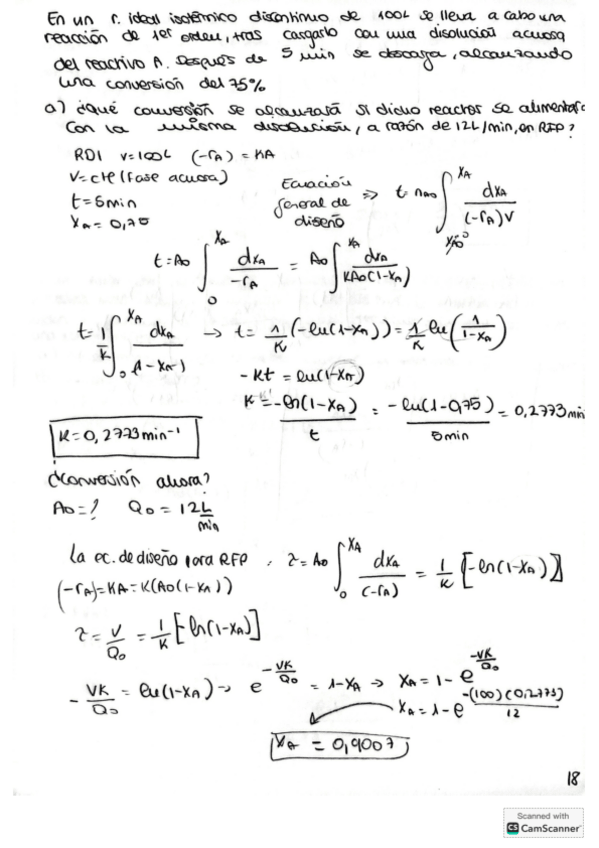 En un r. ideal isotérmico discontinuo de 100L se lleva a cabo una
reacción de 1er orden, tras cargarlo con una disolución acuosa
del reactivo A. Después de 5 min se descarga, alcanzando
una conversión del 75%
a) ¿qué conversión se alcanzará si dicho reactor se alimentara
con la misma disolución, a razón de 12L/min, en RFP?
RDI V=100L (-rA) = KA
V=cte (fase acuosa)
t=5min
XA = 0,75
Ecuación general de diseño => t = nA0 ∫_{XA0=0}^{XA} dXA/((-rA)V)
t = A0 ∫_0^{XA} dXA/(-rA) = A0 ∫^{XA} dXA/(KA0(1-XA))
t = 1/K ∫_0^{XA} dXA/(1-XA) → t = 1/K (-ln(1-XA)) = 1/K ln(1/(1-XA))
-Kt = ln(1-XA)
K = -ln(1-XA)/t = -ln(1-0,75)/5min = 0,2773 min
K = 0,2773 min⁻¹
¿Conversión ahora?
A0 = ? Q0 = 12 L/min
La ec. de diseño para RFP: τ = A0 ∫_0^{XA} dXA/(-rA) = 1/K [-ln(1-XA)]
(-rA) = KA = K(A0(1-XA))
τ = V/Q0 = 1/K [-ln(1-XA)]
-VK/Q0 = ln(1-XA) → e^{-VK/Q0} = 1-XA → XA = 1 - e^{-VK/Q0}
XA = 1 - e^{-(100)(0,2773)/12}
XA = 0,9007
18
Scanned with
CS CamScanner